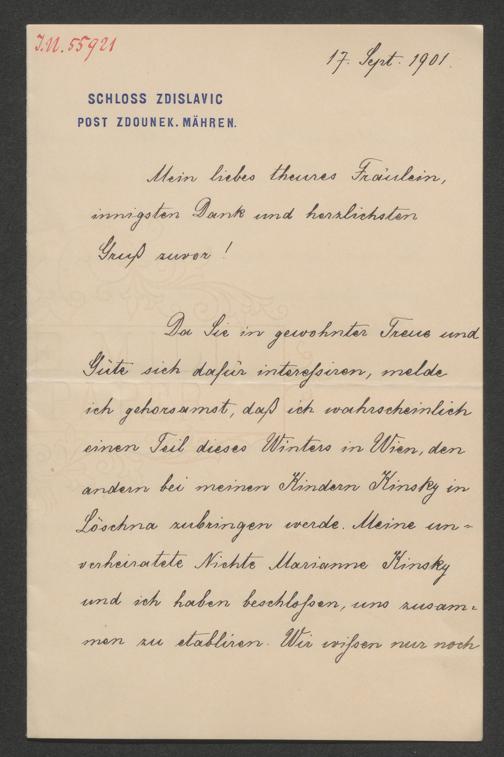 J.N. 55921
17. Sept. 1901.
SCHLOSS ZDISLAVIC
POST ZDOUNEK. MÄHREN.
Mein liebes theures Fräulein,
innigsten Dank und herzlichsten
Gruß zuvor!
Da Sie in gewohnter Treue und
Güte sich dafür intereßiren, melde
ich gehorsamst, daß ich wahrscheinlich
einen Teil dieses Winters in Wien, den
andern bei meinen Kindern Kinsky in
Löschna zubringen werde. Meine un=
verheiratete Nichte Marianne Kinsky
und ich haben beschloßen, uns zusam=
men zu etabliren. Wir wißen nur noch